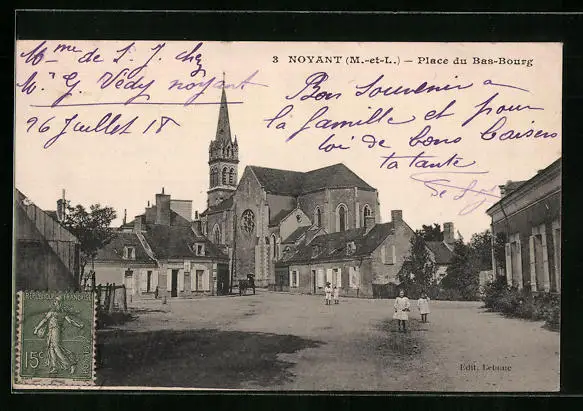 3 NOYANT (M.-et-L.) — Place du Bas-Bourg
Mme de S. J. chez
Mr G. Védy noyant
26 Juillet 18
Bon Souvenir a
la famille et pour
toi de bons baisers
ta tante
REPUBLIQUE FRANÇAISE
15c
Edit. Lebouc